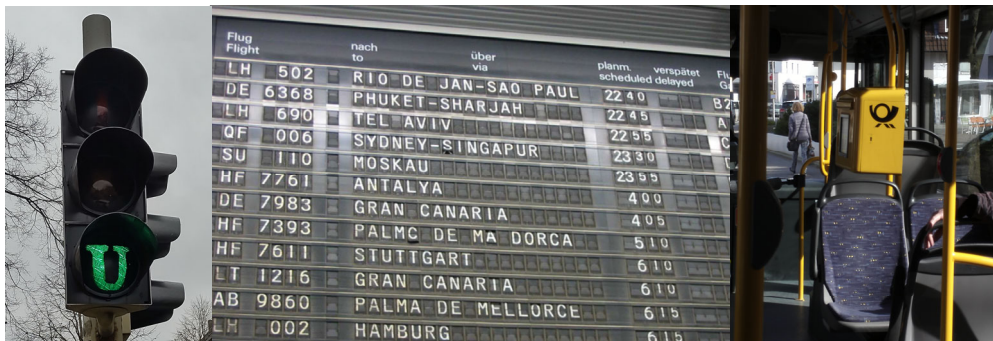 U
Flug
Flight
nach
to
über
via
planm.
scheduled
verspätet
delayed
LH 502 RIO DE JAN-SAO PAUL 2240 B2
DE 6368 PHUKET-SHARJAH 2245 A
LH 690 TEL AVIV 2255
QF 006 SYDNEY-SINGAPUR 2330
SU 110 MOSKAU 2355
HF 7761 ANTALYA 400
DE 7983 GRAN CANARIA 405
HF 7393 PALMC DE MA DORCA 510
HF 7611 STUTTGART 610
LT 1216 GRAN CANARIA 610
AB 9860 PALMA DE MELLORCE 615
LH 002 HAMBURG 615